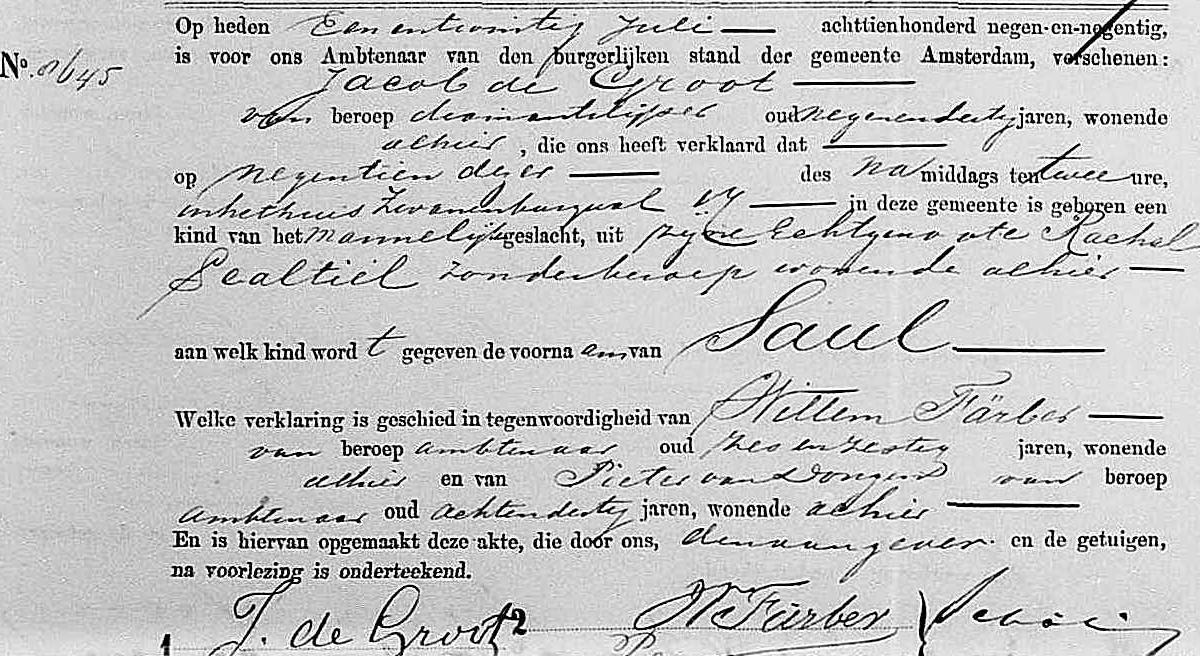 Op heden Eenentwintig Juli achttienhonderd negen-en-negentig,
is voor ons Ambtenaar van den burgerlijken stand der gemeente Amsterdam, verschenen:
No. 8645
Jacob de Groot
van beroep diamantslijper oud negenendertig jaren, wonende
alhier, die ons heeft verklaard dat
op negentien dezer des namiddags ten twee ure,
in het huis Zwanenburgwal 14 in deze gemeente is geboren een
kind van het mannelijk geslacht, uit zijne Echtgenoote Rachel
Sealtiël zonder beroep wonende alhier
aan welk kind wordt gegeven de voornaam van Saul
Welke verklaring is geschied in tegenwoordigheid van Willem Färber
van beroep ambtenaar oud zes en zestig jaren, wonende
alhier en van Pieter van Dongen van beroep
ambtenaar oud achtendertig jaren, wonende alhier
En is hiervan opgemaakt deze akte, die door ons, den aangever en de getuigen,
na voorlezing is onderteekend.
1 J. de Groot 2 W Färber